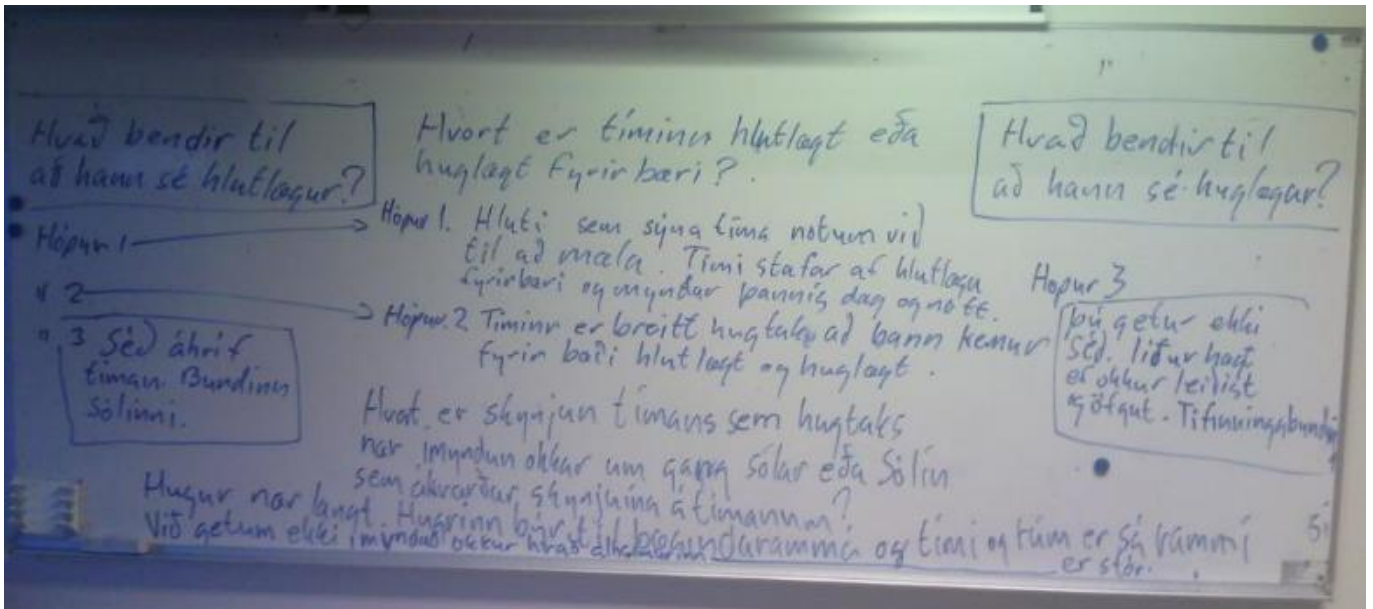 Hvað bendir til
að hann sé hlutlægur?
Hópur 1
" 2
" 3 Séð áhrif
tíman. Bundinn
sólinni.
Hvort er tíminn hlutlægt eða
huglægt fyrirbæri?
Hópur 1. Hluti sem sýna tíma notum við
til að mæla. Tími stafar af hlutlægu
fyrirbæri og myndar þannig dag og nótt.
Hópur 2 Tíminn er breitt hugtak að hann kemur
fyrir bæði hlutlægt og huglægt.
Hvat er skynjun tímans sem hugtaks
ímyndun okkar um gang sólar eða Sólin
sem ákvarðar skynjunina á tímanum?
Hugur nær langt. Hugrinn býr til ramma og tími og rúm er sá rammi
Við getum ekki ímyndað okkur
er stór.
Hvað bendir til
að hann sé huglægur?
Hópur 3
Þú getur ekki
séð. líður hægt
ef okkur leiðist
og öfgut. Tifinningabundin